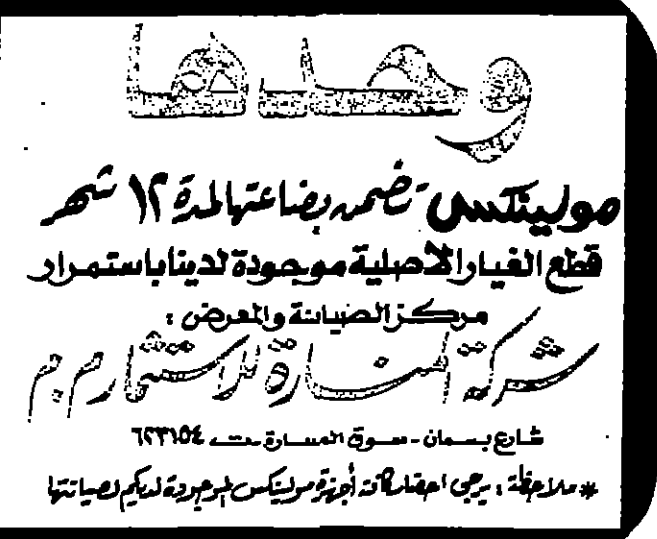 وحدها
مولينكس تضمن بضاعتها لمدة ١٢ شهر
قطع الغيار الأصلية موجودة لدينا باستمرار
مركز الصيانة والمعرض :
شركة المنارة للاستثمار م.م
شارع بسمان - سوق المنارة ت ٦٢٣١٥٤
* ملاحظة : يرجى احضار كافة أجهزة مولينكس الموجودة لديكم لصيانتها